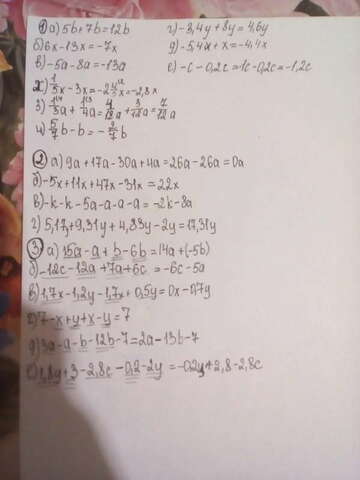 ① а) 5b+7b=12b
г) -3,4y+8y=4,6y
б) 6x-13x=-7x
д) -5,4x+x=-4,4x
в) -5a-8a=-13a
е) -c-0,2c=1c-0,2c=-1,2c
3) 1/3a+1/4a=4/12a+3/12a=7/12a
и) 5/7b-b=-2/7b
② а) 9a+17a-30a+4a=26a-26a=0a
б) -5x+11x+47x-31x=22x
в) -k-k-5a-a-a-a=-2k-8a
г) 5,17y+9,31y+4,83y-2y=17,31y
③ а) 15a-a+b-6b=14a+(-5b)
б) -12c-12a+7a+6c=-6c-5a
в) 1,7x-1,2y-1,7x+0,5y=0x-0,7y
г) 7-x+y+x-y=7
д) 3a-a-b-12b-7=2a-13b-7
е) 1,8y+3-2,8c-0,2-2y=-0,2y+2,8-2,8c